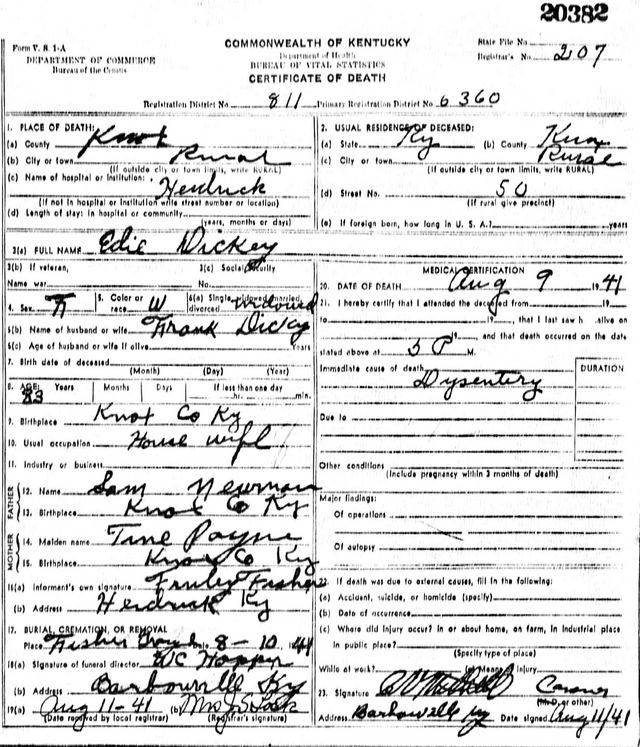 20382
Form V. S. 1-A
COMMONWEALTH OF KENTUCKY
State File No.
DEPARTMENT OF COMMERCE
Department of Health
Registrar's No. 207
Bureau of the Census
BUREAU OF VITAL STATISTICS
CERTIFICATE OF DEATH
Registration District No. 811 Primary Registration District No. 6360
1. PLACE OF DEATH:
(a) County Knox
(b) City or town Rural
(If outside city or town limits, write RURAL)
(c) Name of hospital or institution:
Heidrick
(If not in hospital or institution write street number or location)
(d) Length of stay: in hospital or community
(years, months or days)
2. USUAL RESIDENCE OF DECEASED:
(a) State Ky (b) County Knox
(c) City or town Rural
(If outside city or town limits, write RURAL)
(d) Street No. 50
(If rural give precinct)
(e) If foreign born, how long in U. S. A.? years
3(a) FULL NAME Edie Dickey
3(b) If veteran,
Name war
3(c) Social Security
No.
4. Sex F 5. Color or race W 6(a) Single, widowed, married, divorced widowed
6(b) Name of husband or wife Frank Dicky
6(c) Age of husband or wife if alive Years
7. Birth date of deceased
(Month) (Day) (Year)
8. AGE: Years Months Days If less than one day
83 hr. min.
9. Birthplace Knox Co Ky
10. Usual occupation House wife
11. Industry or business
FATHER
12. Name Sam Newman
13. Birthplace Knox Co Ky
MOTHER
14. Maiden name Payne
15. Birthplace Knox Co Ky
16(a) Informant's own signature Fisher
(b) Address Heidrick Ky
17. BURIAL, CREMATION, OR REMOVAL
Place Fisher Date 8-10, 1941
18(a) Signature of funeral director WC Hopper
(b) Address Barbourville Ky
19(a) Aug 11-41 (b) Mrs
(Date received by local registrar) (Registrar's signature)
MEDICAL CERTIFICATION
20. DATE OF DEATH Aug 9 1941
21. I hereby certify that I attended the deceased from 19
to 19, that I last saw h alive on
19, and that death occurred on the date
stated above at 5 P M.
Immediate cause of death
DURATION
Dysentery
Due to
Other conditions
(Include pregnancy within 3 months of death)
Major findings:
Of operations
Of autopsy
22. If death was due to external causes, fill in the following:
(a) Accident, suicide, or homicide (specify)
(b) Date of occurrence
(c) Where did injury occur? In or about home, on farm, in industrial place
in public place?
(Specify type of place)
While at work? (e) Means of Injury
23. Signature Coroner
(M. D. or other)
Address Barbourville Ky Date signed Aug 11/41